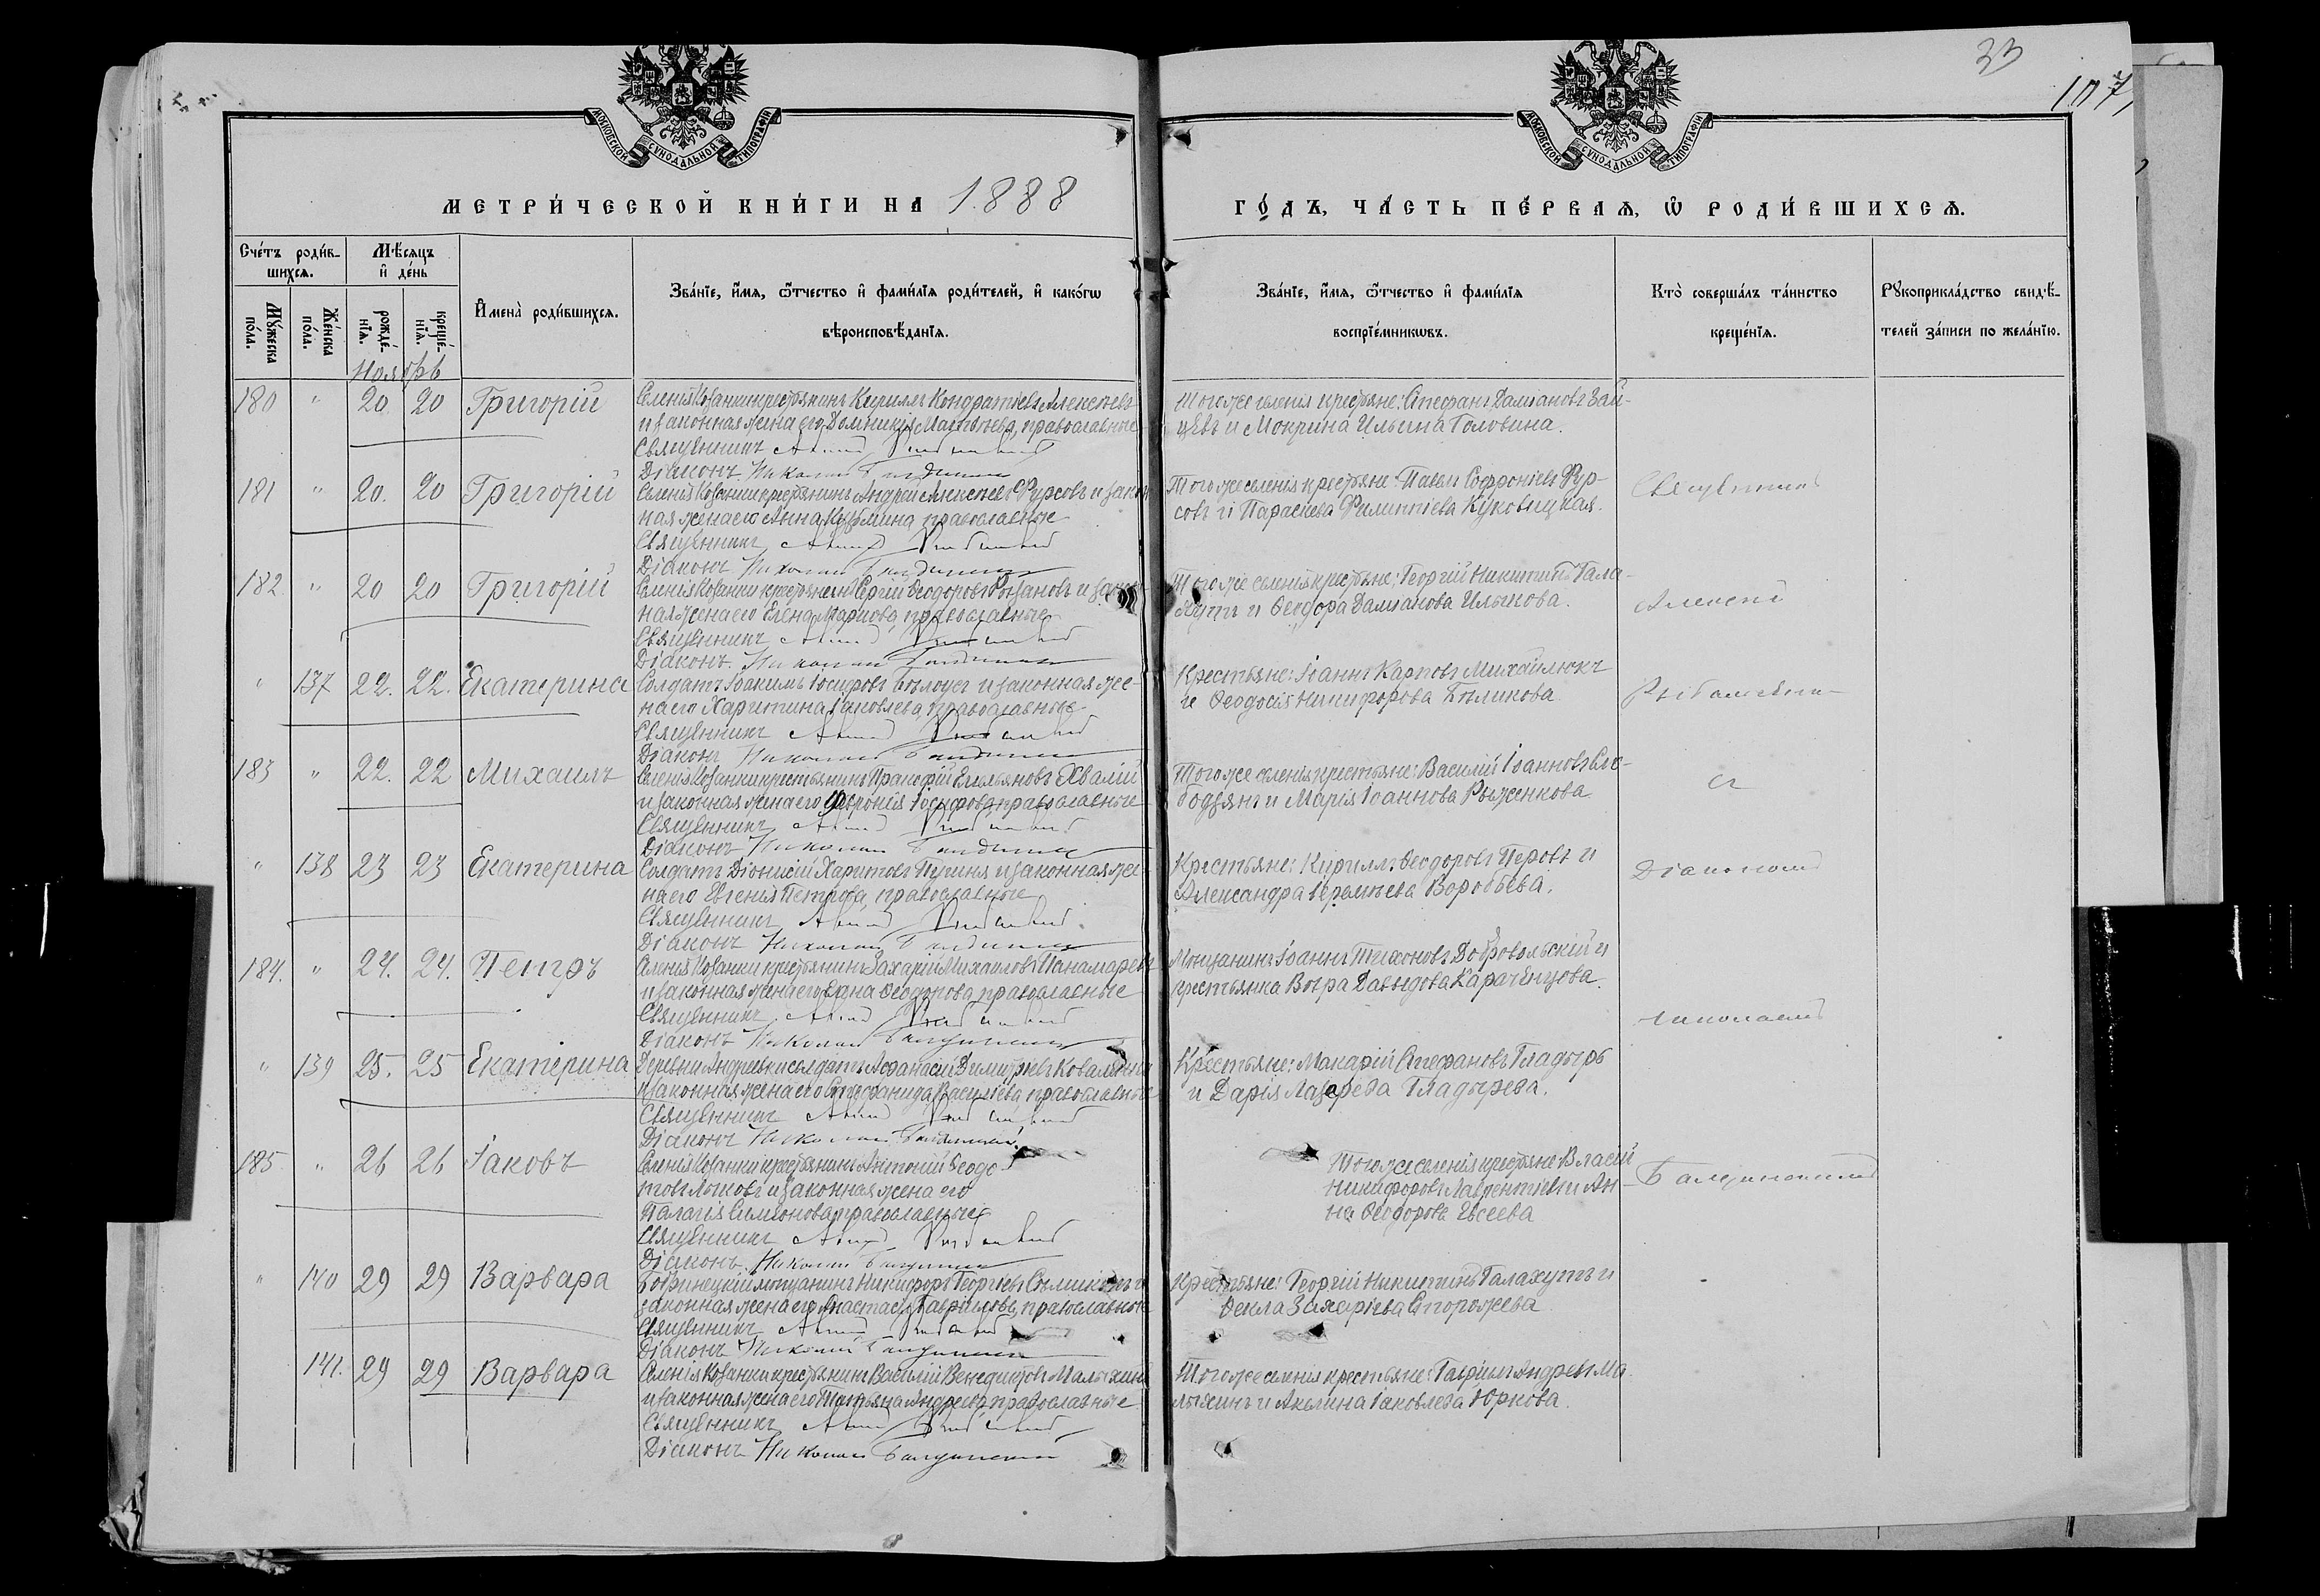 33
107
МОСКОВСКОЙ СѴНОДАЛЬНОЙ ТИПОГРАФІИ
МОСКОВСКОЙ СѴНОДАЛЬНОЙ ТИПОГРАФІИ
МЕТРИ́ЧЕСКОЙ КНИ́ГИ НА 1888
ГО́ДЪ, ЧА́СТЬ ПЕ́РВАѦ, Ѡ҆ РОДИ́ВШИХСѦ.
Сче́тъ роди́в-
шихсѧ.
Мꙋ́жеска по́ла.
Же́нска по́ла.
Мѣ́сѧцъ и҆ де́нь
рожде́-нїѧ.
креще́-нїѧ.
И҆мена̀ роди́вшихсѧ.
Зва́нїе, и҆́мѧ, ѻ҆́тчество и҆ фами́лїѧ роди́телей, и҆ како́гѡ
вѣроисповѣ́данїѧ.
Зва́нїе, и҆́мѧ, ѻ҆́тчество и҆ фами́лїѧ
воспрїе́мникѡвъ.
Кто̀ соверша́лъ та́инство
креще́нїѧ.
Рꙋкоприкла́дство свидѣ́-
телей за́писи по жела́нїю.
Ноябрь
180 " 20 20 Григорій
Селенія Козанки крестьянинъ Кириллъ Кондратіевъ Алексеевъ
и законная жена его Домникія Матвѣева, православные
Священникъ
Діаконъ Николай
Того же селенія крестьяне: Стефанъ Даміановъ Зай-
цевъ и Мокрина Ильина Головина.
181 " 20. 20 Григорій
Селенія Козанки крестьянинъ Андрей Алексеевъ Фурсовъ и закон
ная жена его Анна Кузьмина, православные
Священникъ
Діаконъ Николай
Того же селенія крестьяне: Павелъ Софроніевъ Фур-
совъ и Параскева Филиппіева Куковицкая.
Священникъ
182. " 20 20 Григорій
Селенія Козанки крестьянинъ Сергій Ѳеодоровъ Розановъ и закон
ная жена его Елена Маркова, православные
Священникъ
Діаконъ Николай
Того же селенія крестьяне: Георгій Никитинъ Гала-
хутъ и Ѳеодора Даміанова Илькова.
Алексей
" 137 22. 22. Екатерина
Солдатъ Іоакимъ Іосифовъ Бѣлоусъ и законная же-
на его Харитина Іаковлева, православные
Священникъ
Діаконъ Николай
Крестьяне: Іоаннъ Карповъ Михайлюкъ
и Ѳеодосія Никифорова Бѣликова
183 " 22. 22 Михаилъ
Селенія Козанки крестьянинъ Прокофій Емельяновъ Хвалій
и законная жена его Февронія Іосифова, православные
Священникъ
Діаконъ Николай
Того же селенія крестьяне: Василій Іоанновъ Сло-
бодзянъ и Марія Іоаннова Рыженкова
съ
" 138 23 23 Екатерина
Солдатъ Діонисій Харитовъ Пугиня и законная же-
на его Евгенія Петрова, православные
Священникъ
Діаконъ Николай
Крестьяне: Кириллъ Ѳеодоровъ Перовъ и
Александра Іереміева Воробьева.
Діакономъ
184. " 24. 24. Петръ
Селенія Козанки крестьянинъ Захарій Михаиловъ Панамаревъ
и законная жена его Ѳеодорова, православные
Священникъ
Діаконъ Николай
Мѣщанинъ Іоаннъ Тихоновъ Добровольскій и
крестьянка Вѣра Давыдова Карачевцова.
Николаемъ
" 139 25. 25 Екатерина
Деревни Андреевки солдатъ Аѳанасій Димитріевъ
и законная жена его Стефанида Василіева, православные
Священникъ
Діаконъ Николай
Крестьяне: Макарій Стефановъ Гладырь
и Дарія Лазарева Гладырева.
185 " 26 26 Іаковъ
Селенія Козанки крестьянинъ Антоній Ѳеодо
товъ Лыковъ и законная жена его
Палагія Симіонова, православные
Священникъ
Діаконъ Николай
Того же селенія крестьяне Власій
Никифоровъ Лаврентіевъ и Ан-
на Ѳеодорова Евсеева
" 140 29 29 Варвара
Бобринецкій мѣщанинъ Никифоръ Георгіевъ и
законная жена его Анастасія Гаврилова, православные
Священникъ
Діаконъ Николай
Крестьяне: Георгій Никитинъ Галахутъ и
Ѳекла Захаріева Сторожева
141. 29 29 Варвара
Селенія Козанки крестьянинъ Василій Венедиктовъ Малыхинъ
и законная жена его Татьяна Андреева, православные
Священникъ
Діаконъ Николай
Того же селенія крестьяне: Гавріилъ Андреевъ Ма
лыхинъ и Акелина Іаковлева Юркова